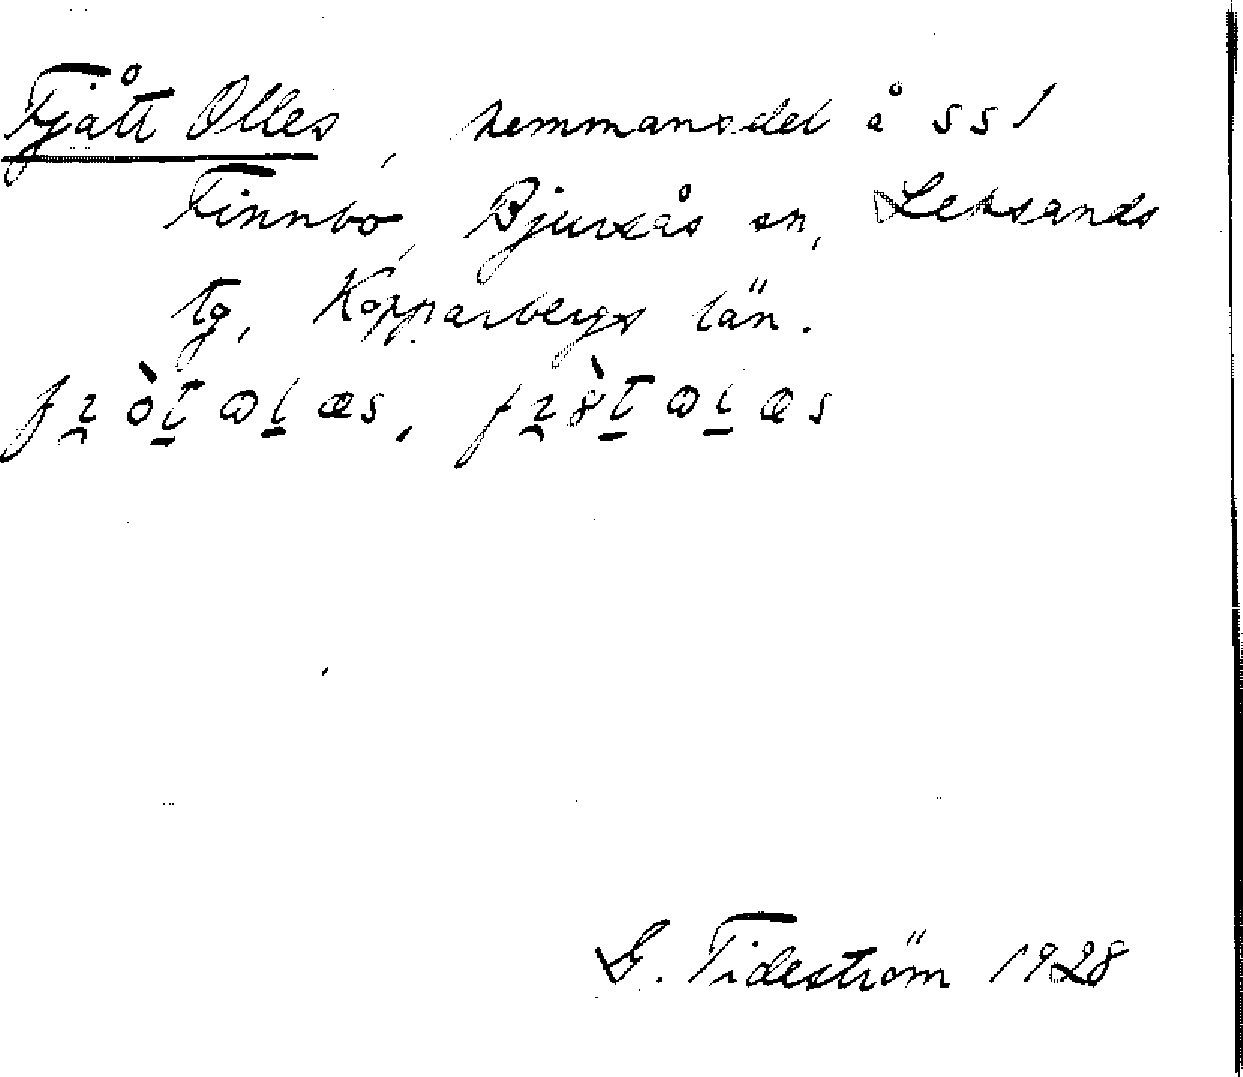 Fjått Olles, hemmansdel å
Finnbo, Bjursås sn, Leksands
tg, Kopparbergs län.
G. Tideström 1928